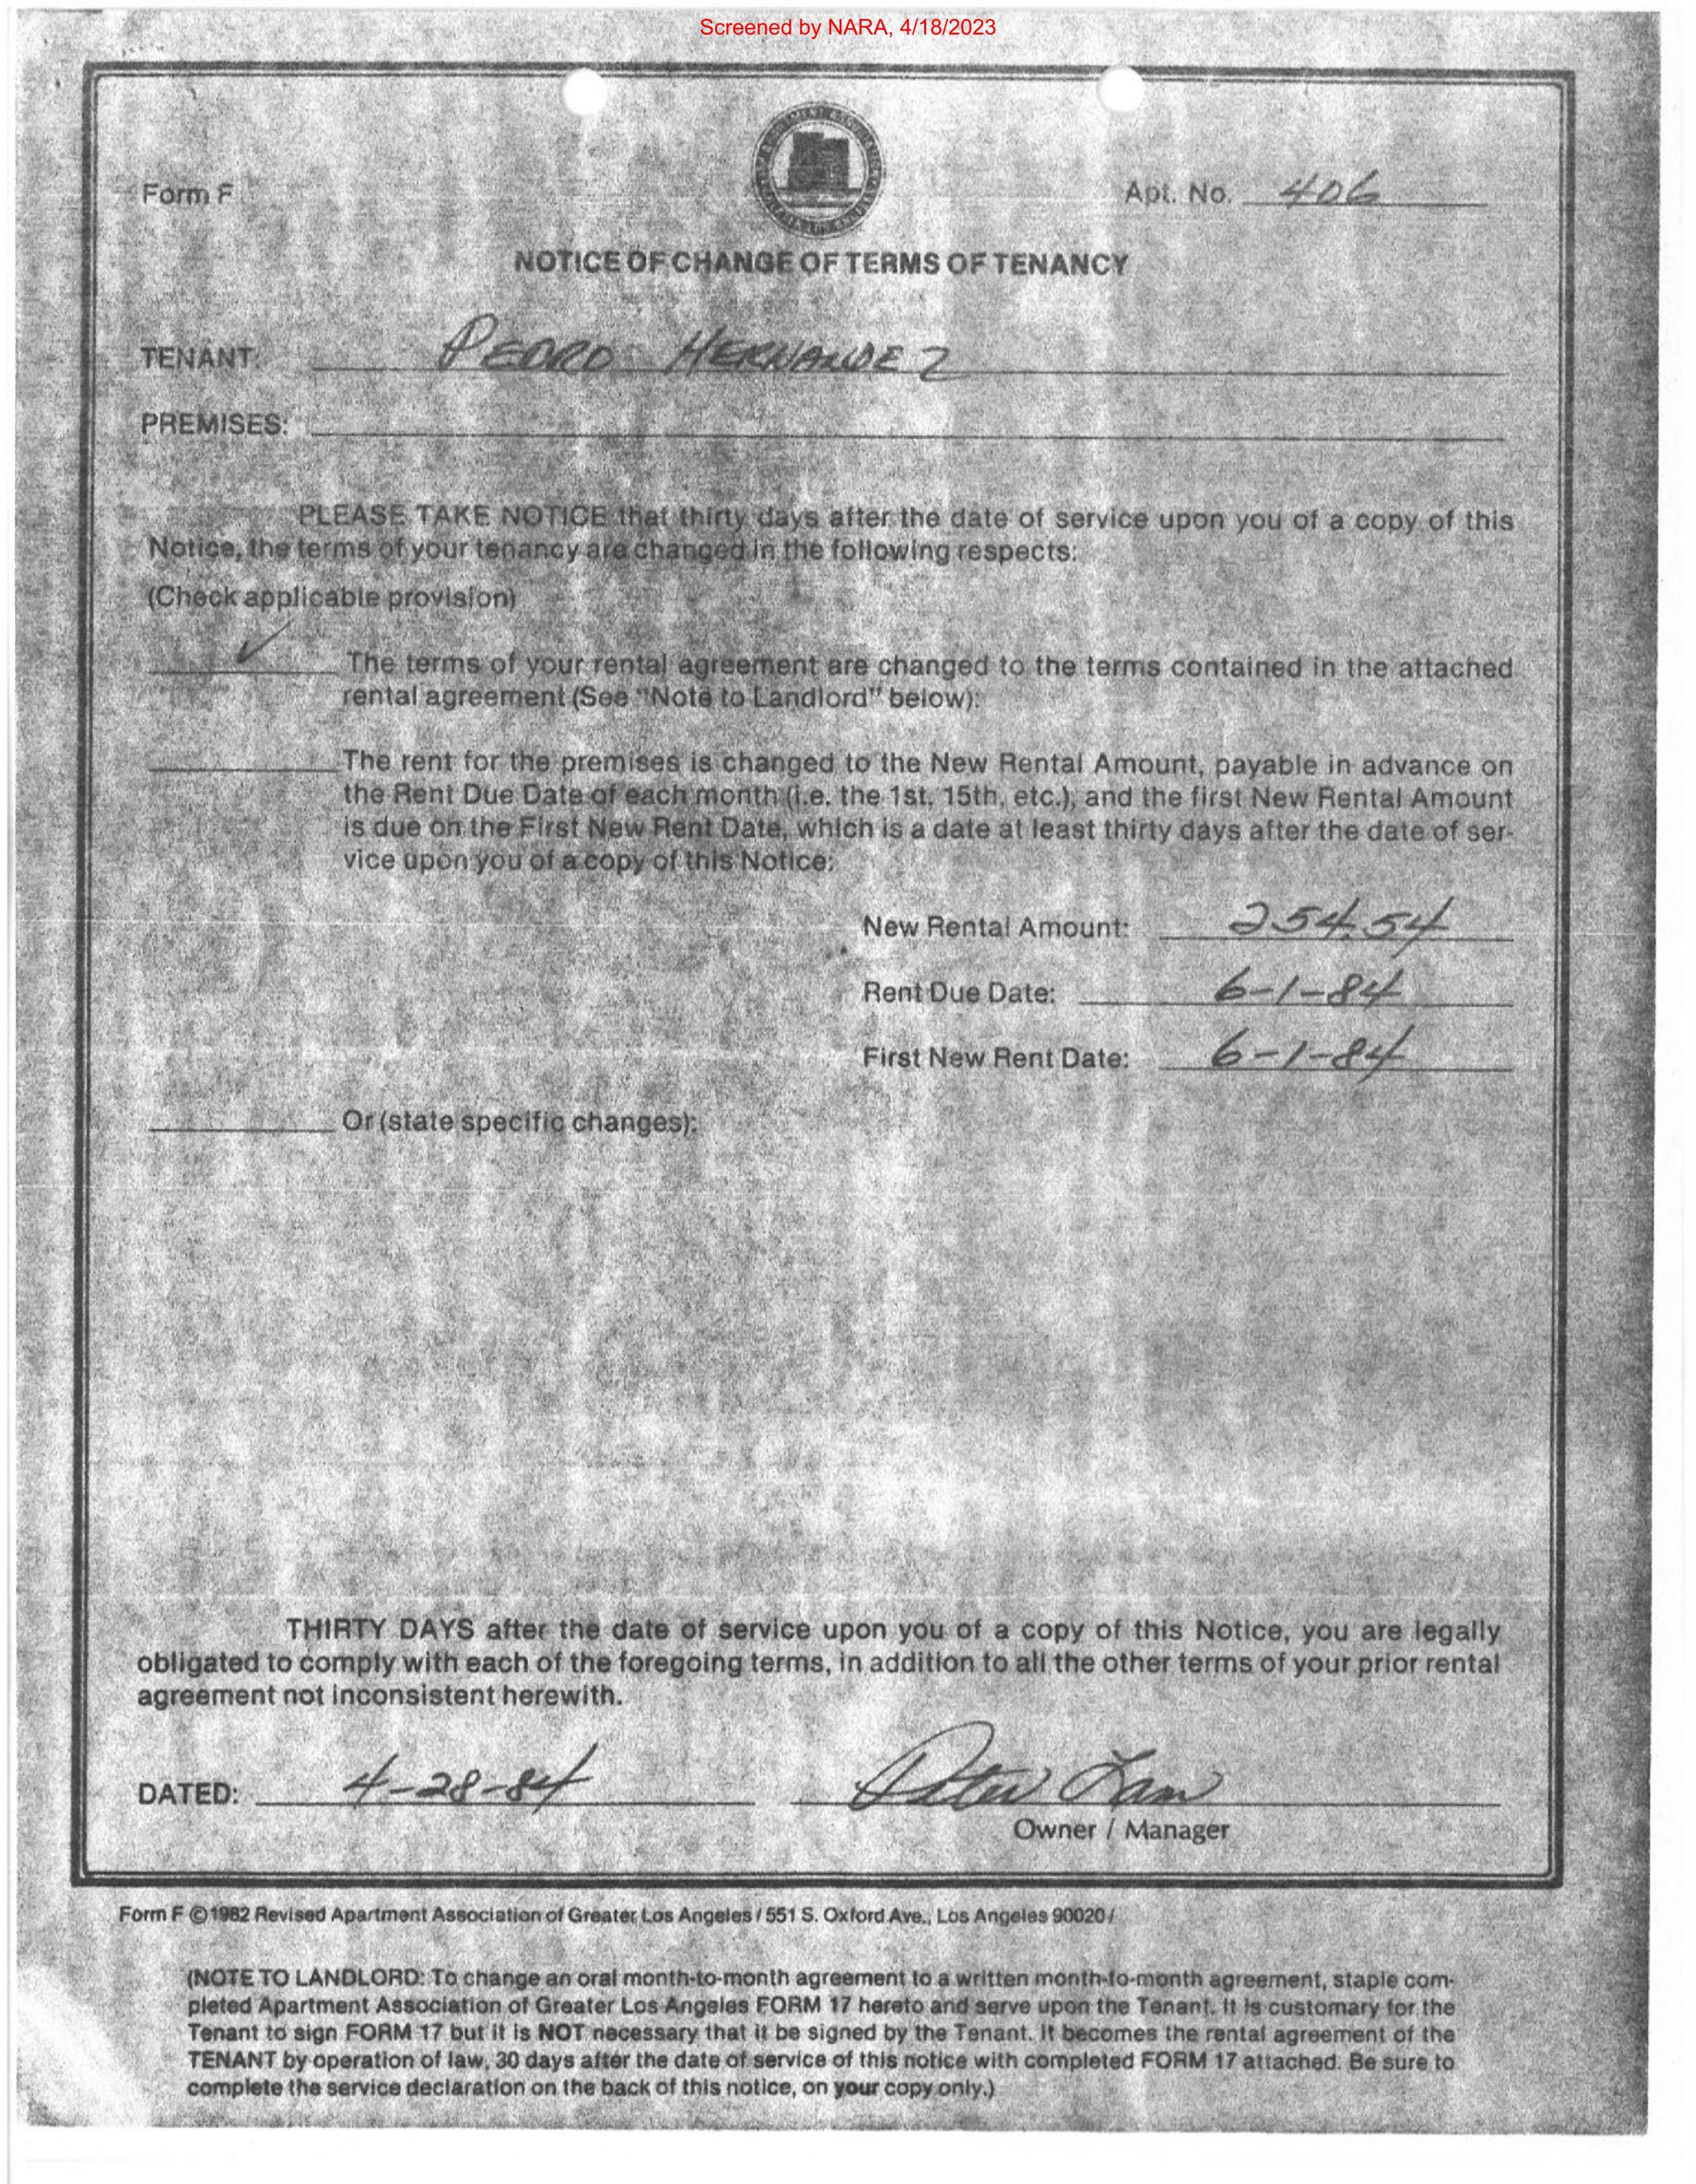 Screened by NARA, 4/18/2023
Form F
Apt. No. 406
NOTICE OF CHANGE OF TERMS OF TENANCY
TENANT: PEDRO HERNANDEZ
PREMISES:
PLEASE TAKE NOTICE that thirty days after the date of service upon you of a copy of this
Notice, the terms of your tenancy are changed in the following respects:
(Check applicable provision)
✓ The terms of your rental agreement are changed to the terms contained in the attached
rental agreement (See "Note to Landlord" below):
The rent for the premises is changed to the New Rental Amount, payable in advance on
the Rent Due Date of each month (i.e. the 1st, 15th, etc.), and the first New Rental Amount
is due on the First New Rent Date, which is a date at least thirty days after the date of ser-
vice upon you of a copy of this Notice:
New Rental Amount: 254.54
Rent Due Date: 6-1-84
First New Rent Date: 6-1-84
Or (state specific changes):
THIRTY DAYS after the date of service upon you of a copy of this Notice, you are legally
obligated to comply with each of the foregoing terms, in addition to all the other terms of your prior rental
agreement not inconsistent herewith.
DATED: 4-28-84 Peter Lam
Owner / Manager
Form F ©1982 Revised Apartment Association of Greater Los Angeles / 551 S. Oxford Ave., Los Angeles 90020 /
(NOTE TO LANDLORD: To change an oral month-to-month agreement to a written month-to-month agreement, staple com-
pleted Apartment Association of Greater Los Angeles FORM 17 hereto and serve upon the Tenant. It is customary for the
Tenant to sign FORM 17 but it is NOT necessary that it be signed by the Tenant. It becomes the rental agreement of the
TENANT by operation of law, 30 days after the date of service of this notice with completed FORM 17 attached. Be sure to
complete the service declaration on the back of this notice, on your copy only.)